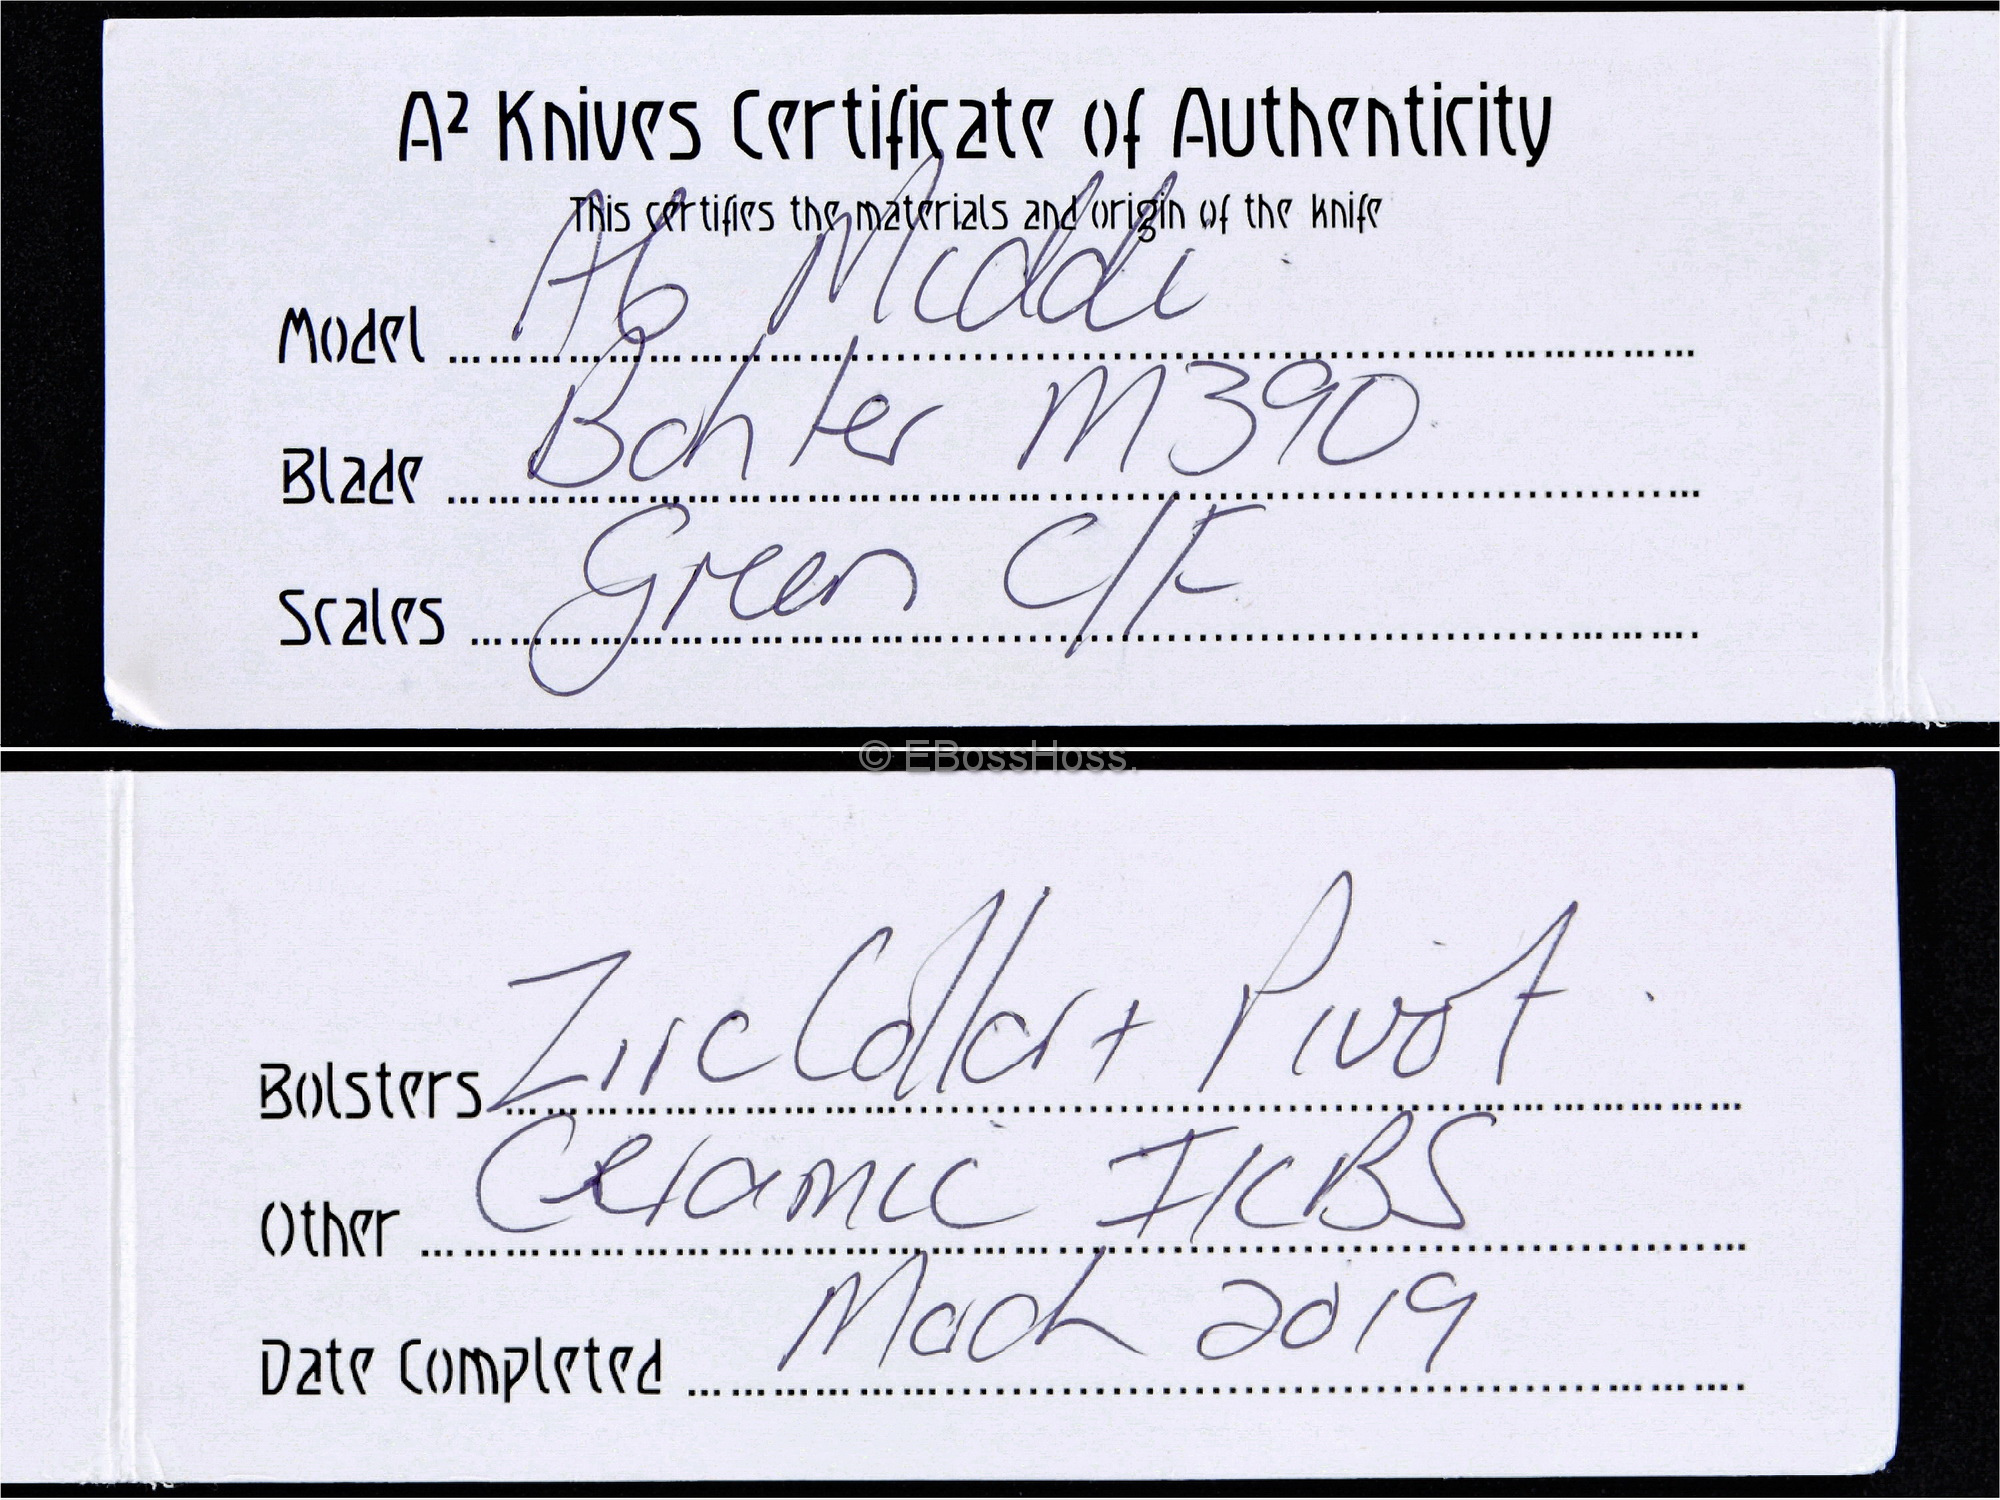 A² Knives Certificate of Authenticity
This certifies the materials and origin of the knife
Model A6 Middi
Blade Bohler M390
Scales Green C/F
© EBossHoss.
Bolsters Zirc Collar + Pivot
Other Ceramic IKBS
Date Completed March 2019